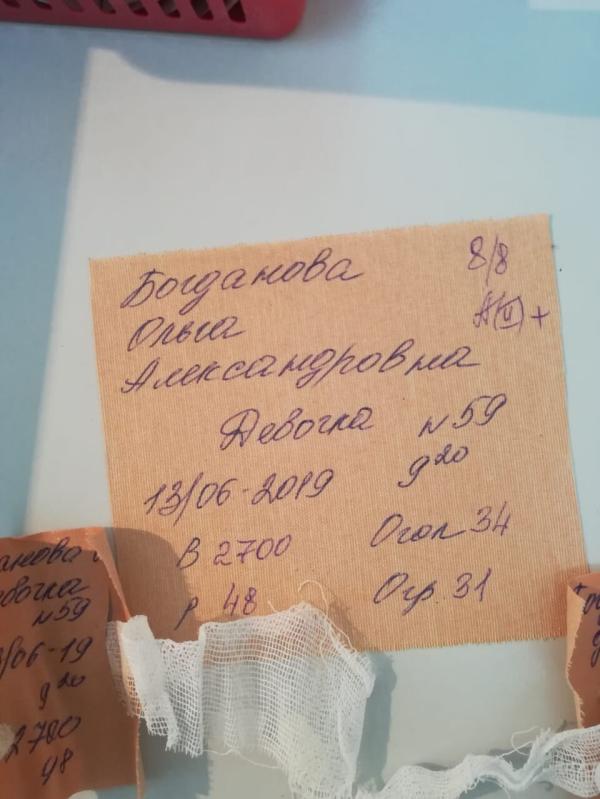 Богданова 8/8
Ольга А(II)+
Александровна
Девочка N59
13/06-2019 9²⁰
В 2700 Огол 34
Р 48 Огр. 31
анова
евочка
N59
/06-19
9²⁰
2700
48